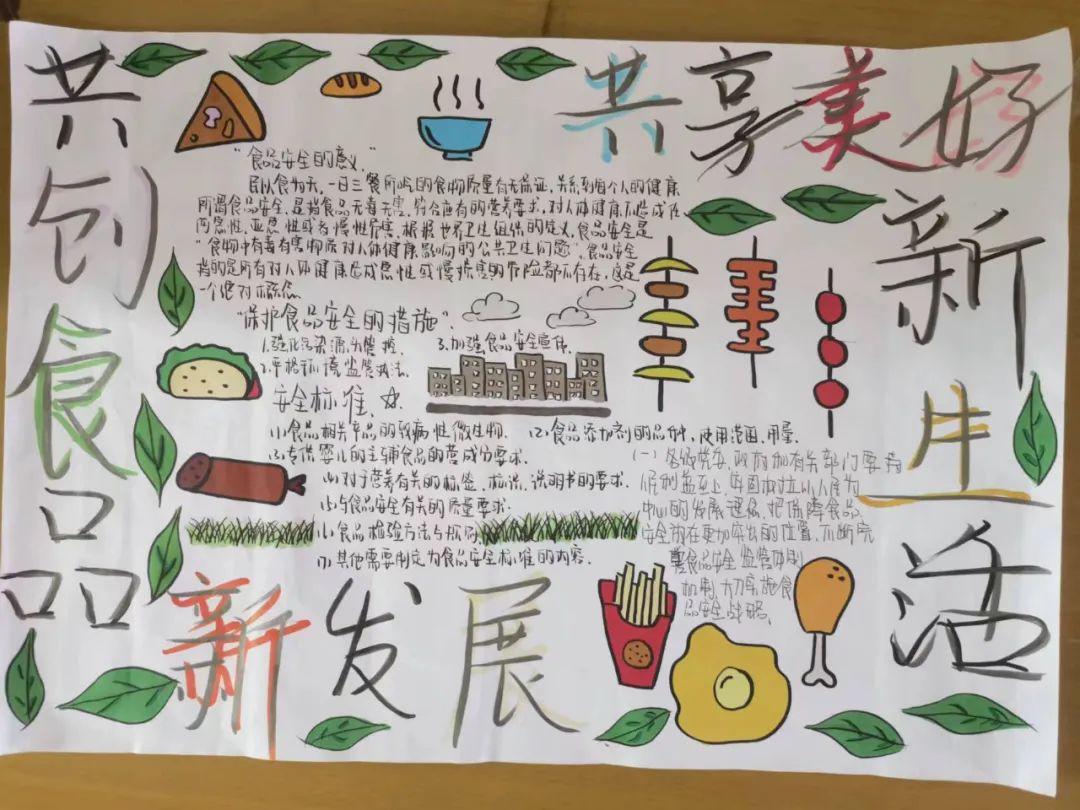 共创食品
新发展
共享美好
新生活
"食品安全的意义"
民以食为天,一日三餐所吃的食物质量有无保证,关系到每个人的健康
所谓食品安全,是指食品无毒无害,符合应有的营养要求,对人体健康不造成任
何急性,亚急性或者慢性危害,根据世界卫生组织的定义,食品安全是
"食物中有毒有害物质对人体健康影响的公共卫生问题",食品安全
指的是所有对人体健康造成急性或慢性危害的危险都不存在,这是
一个绝对概念
"保护食品安全的措施".
1.强化污染源头管控.
2.严格环境监管执法.
3.加强食品安全宣传.
安全标准.
(1)食品相关产品的致病性微生物.
(2)食品添加剂的品种,使用范围,用量.
(3)专供婴儿的主辅食品的营成分要求.
(4)对于营养有关的标签、标识、说明书的要求.
(5)与食品安全有关的质量要求.
(6)食品检验方法与规
(7)其他需要制定为食品安全标准的内容.
(一)各级党委,政府和有关部门要将
人民利益至上,牢固树立以人民为
中心的发展理念,把保障食品
安全放在更加突出的位置,不断完
善食品安全监管体制
机制,大力实施食
品安全战略,